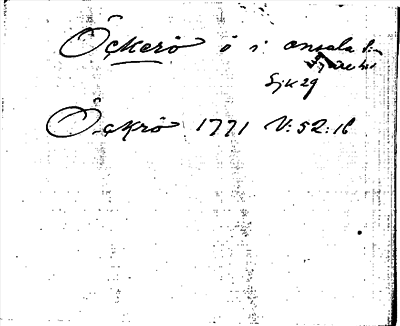 Öckerö ö i Onsala sn
Sjk 29
Öckrö 1771 V:52:16